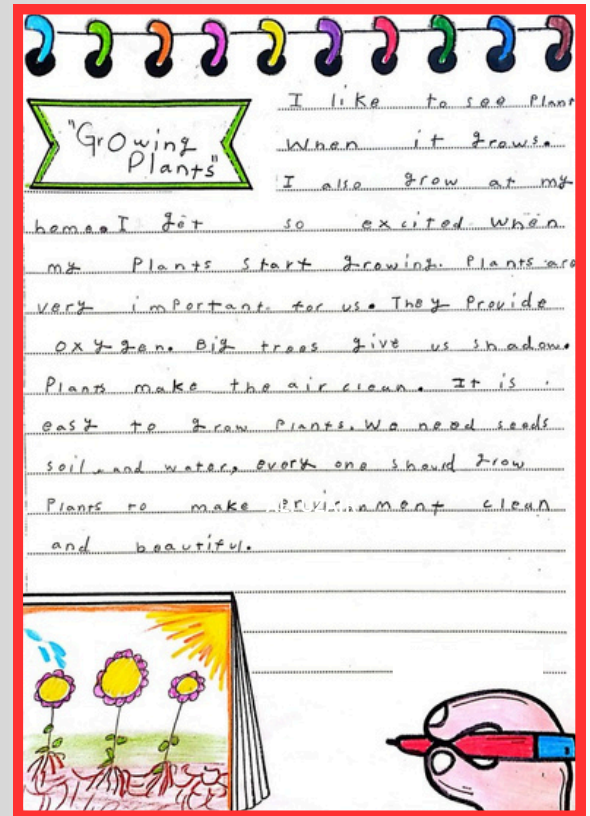 "Growing
Plants"
I like to see Plant
When it grows.
I also grow at my
home. I get so excited when
my Plants start growing. Plants are
very important for us. They Provide
oxygen. Big trees give us shadow.
Plants make the air clean. It is
easy to grow Plants. We need seeds
soil and water, every one should grow
Plants to make environment clean
and beautiful.